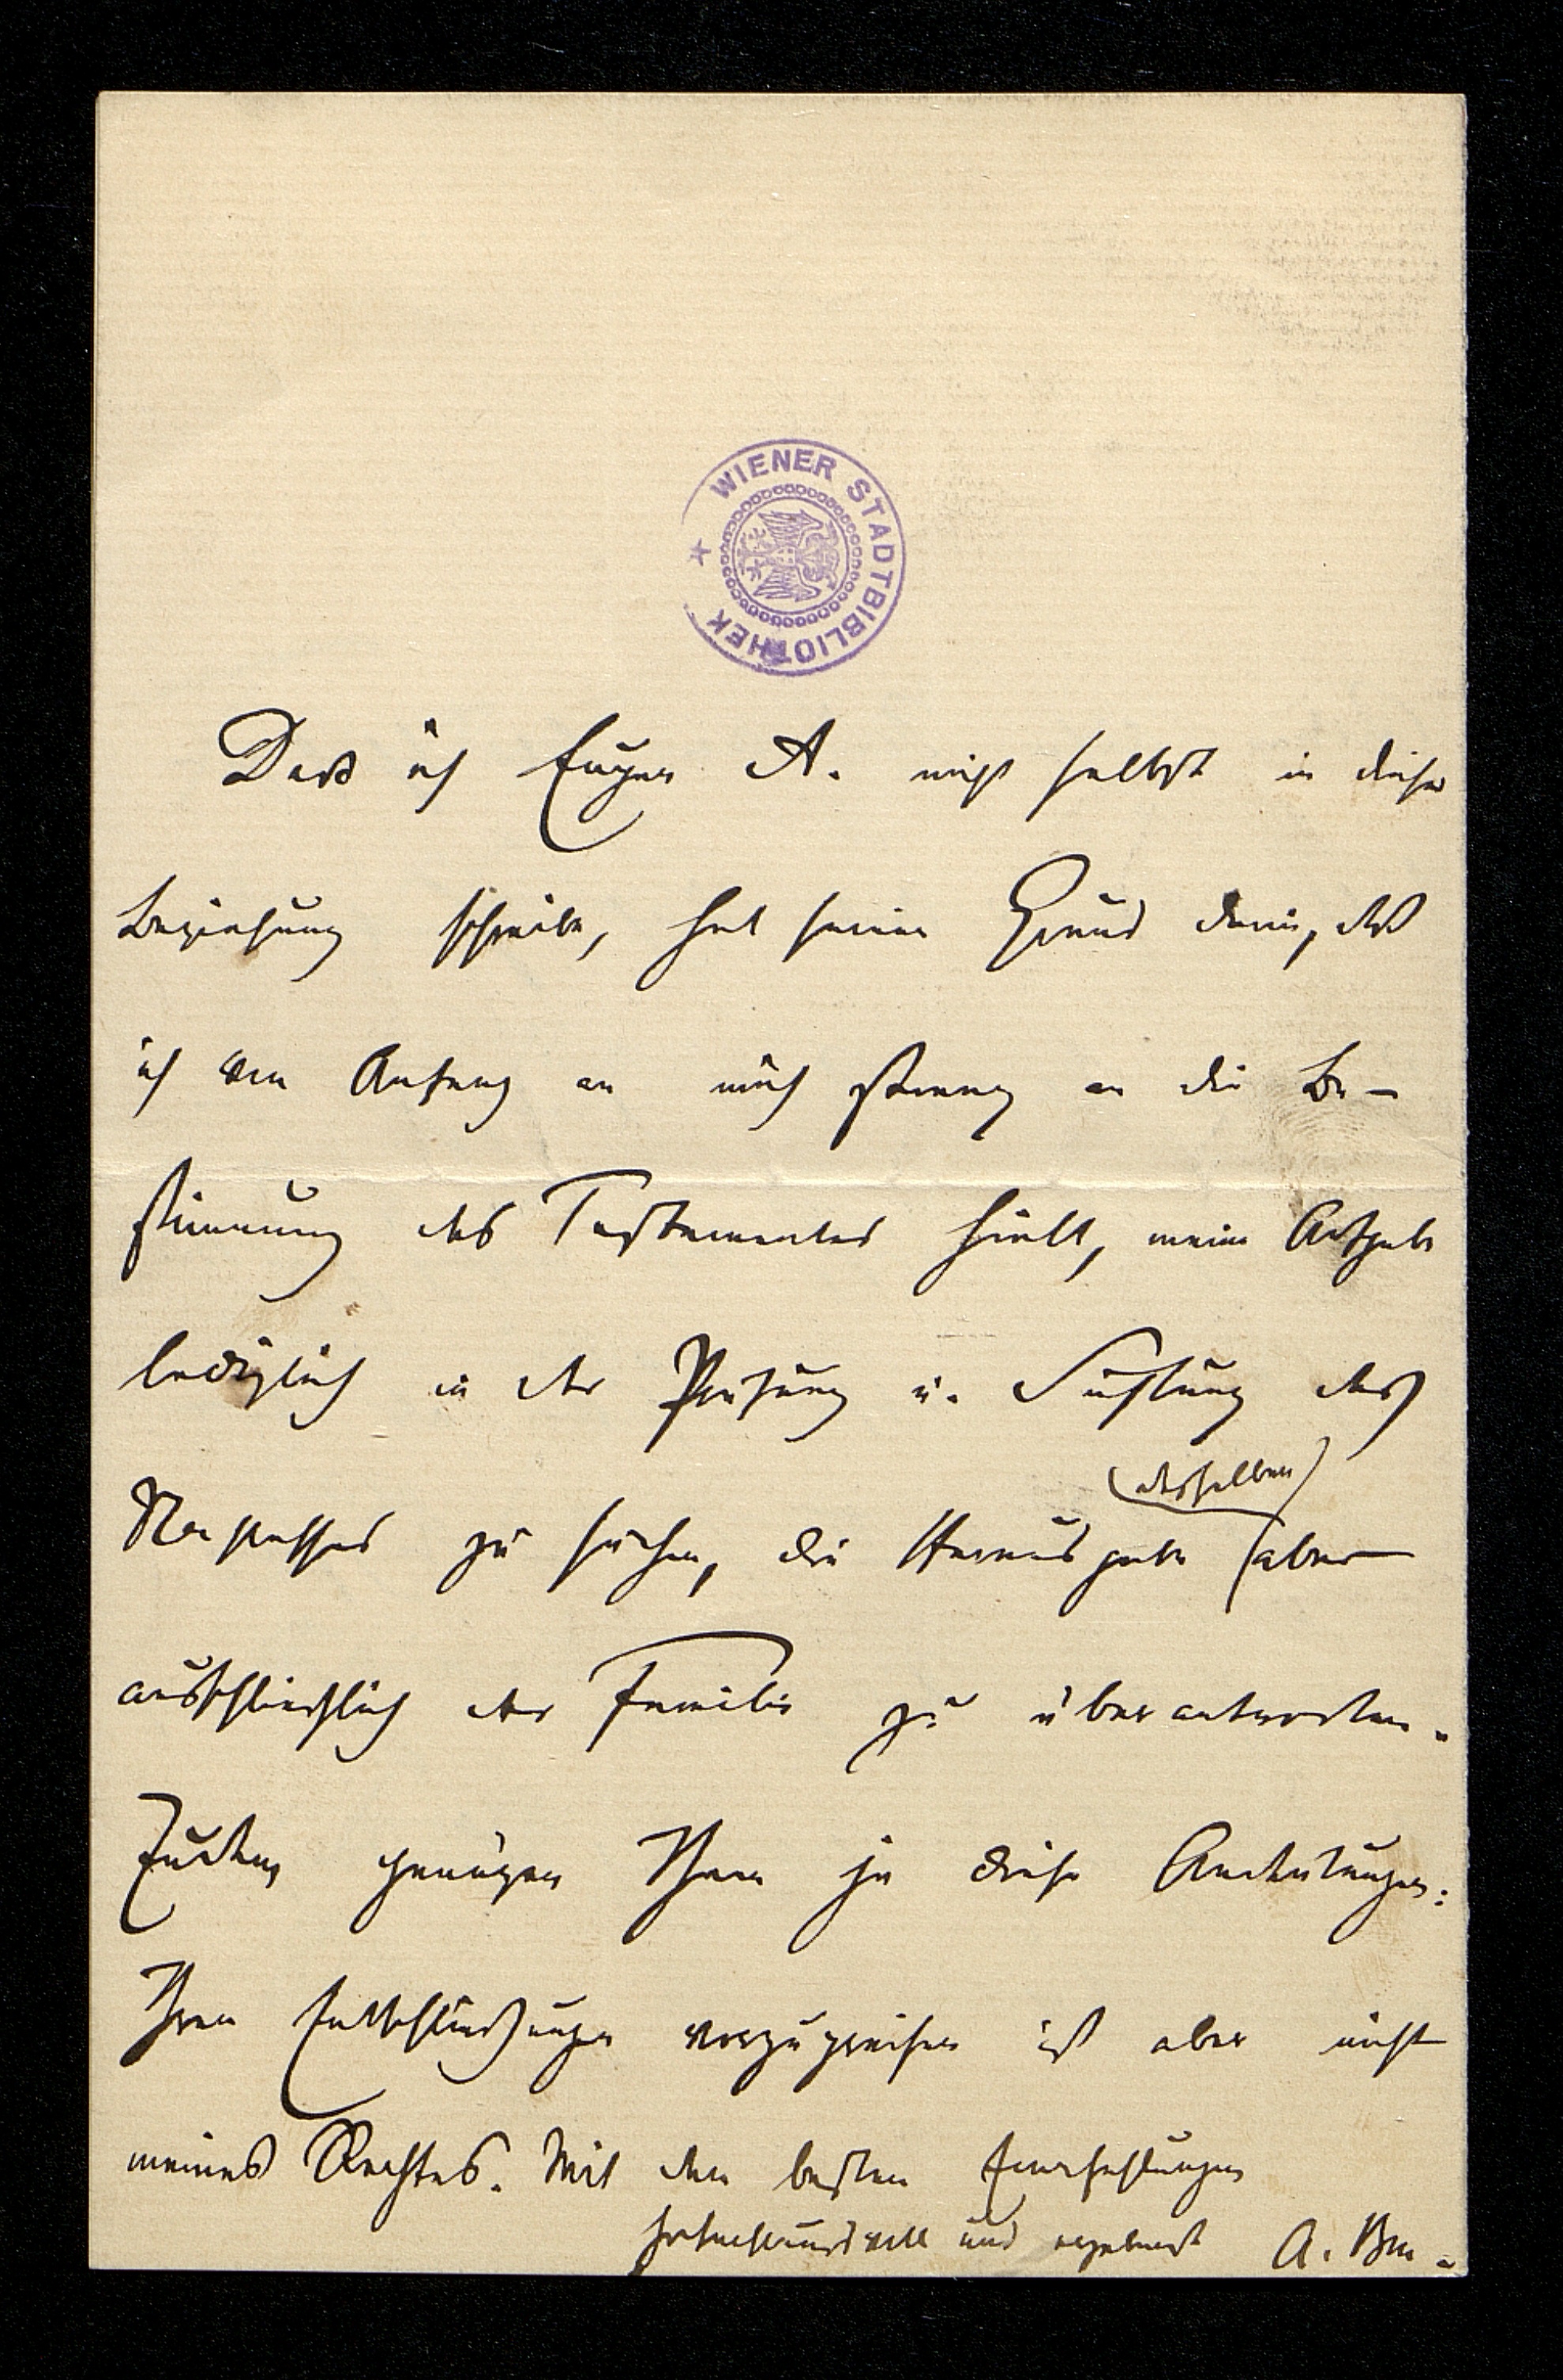 WIENER STADTBIBLIOTHEK
Daß ich Eugen A. nicht selbst in dieser
Beziehung schreibe, hat seinen Grund darin, daß
ich von Anfang an mich streng an die Be-
stimmung des Testamentes hielt, meine Aufgabe
lediglich in der Prüfung u. Sichtung des
Nachlasses zu suchen, die Herausgabe (aber
(desselben)
ausschließlich der Familie zu überantworten.
Zudem genügen Ihnen ja diese Andeutungen:
Ihren Entschließungen vorzugreifen ist aber nicht
meines Rechtes. Mit den besten Empfehlungen
hochachtungsvoll und ergebenst A.